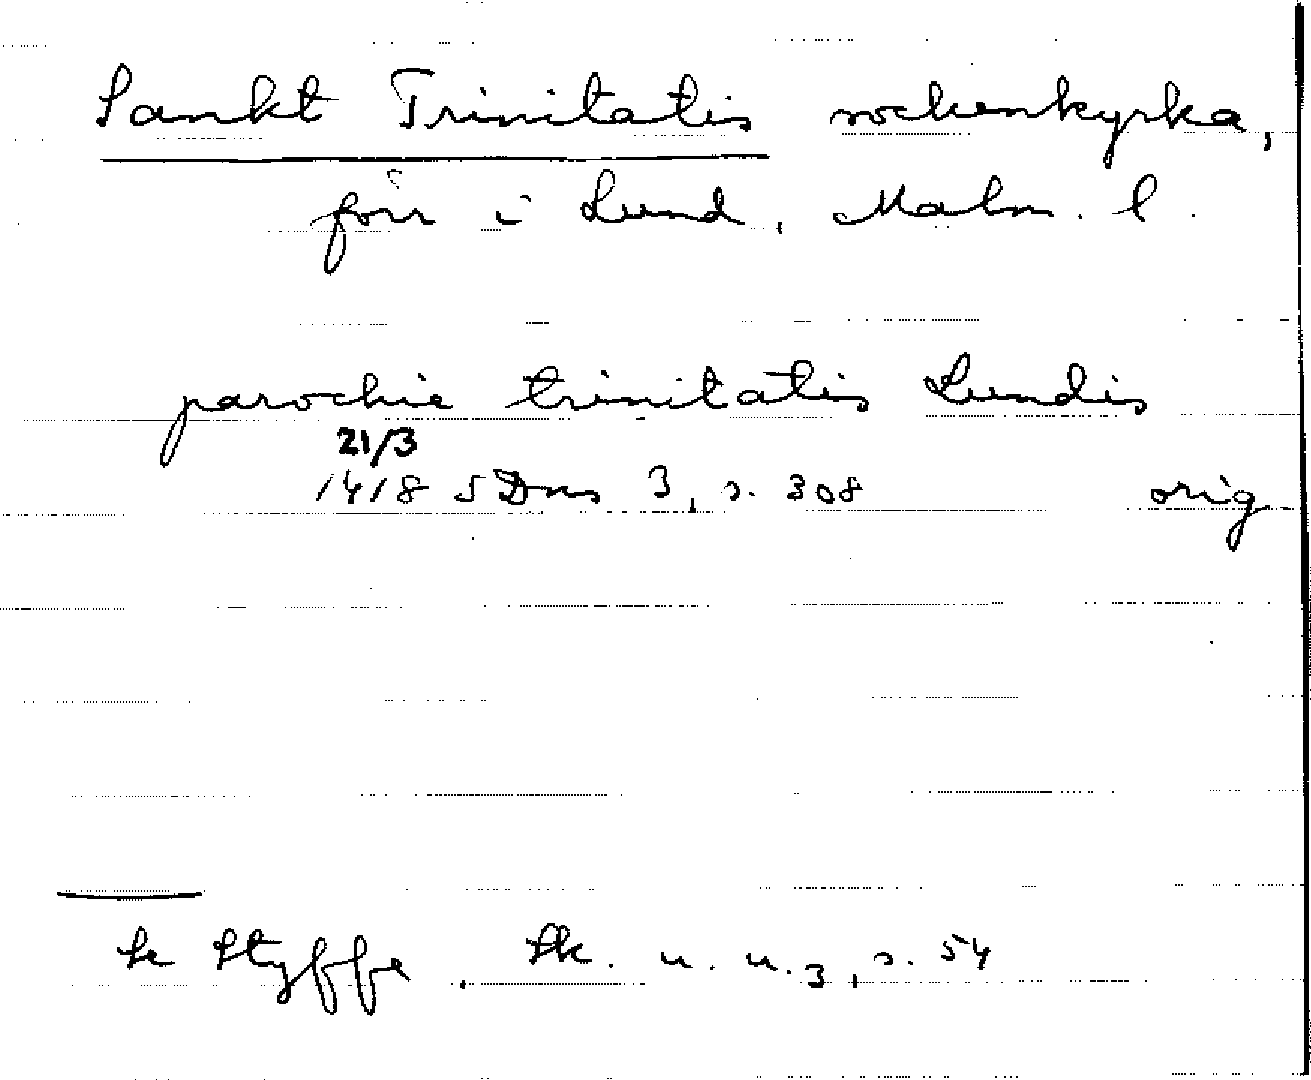 Sankt Trinitatis sockenkyrka,
förr i Lund, Malm. l.
parochie trinitatis Lundis
21/3
1418 SDns 3, s. 308 orig
Se Styffe, Sk. u. u. 3, s. 54